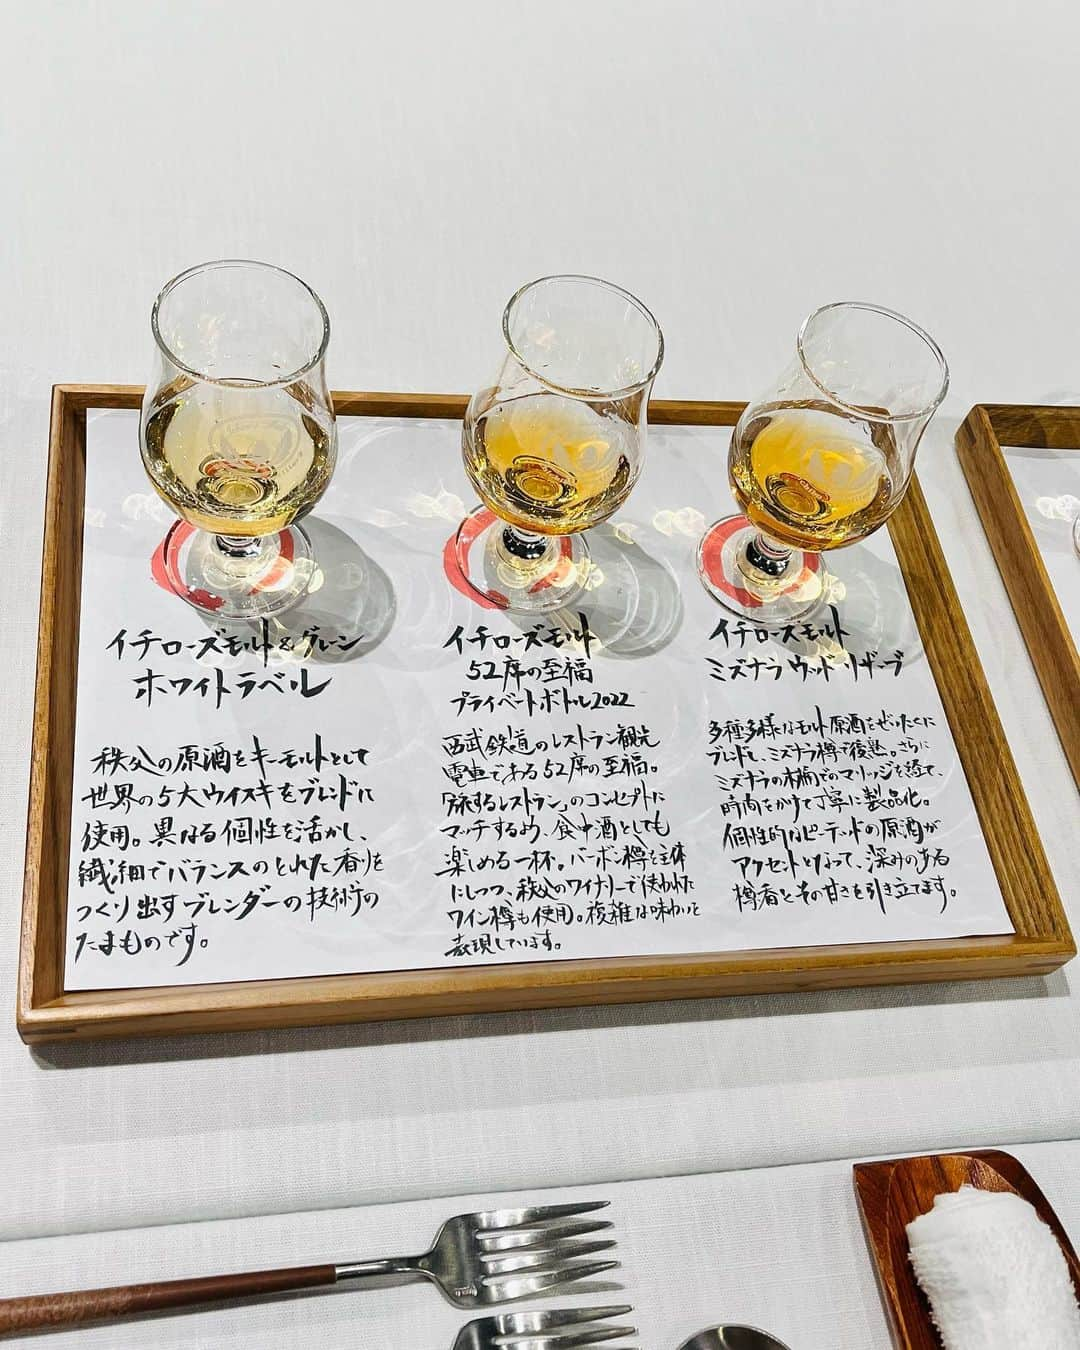 イチローズモルト&グレーン
ホワイトラベル
秩父の原酒をキーモルトとして
世界の5大ウイスキーをブレンドに
使用。異なる個性を活かし、
繊細でバランスのとれた香りを
つくり出すブレンダーの技術の
たまものです。
イチローズモルト
52席の至福
プライベートボトル2022
西武鉄道のレストラン観光
電車である52席の至福。
「旅するレストラン」のコンセプトに
マッチするめ、食中酒としても
楽しめる一杯。バーボン樽を主体
にしつつ、秩父のワイナリーで使われた
ワイン樽も使用。複雑な味わいを
表現しています。
イチローズモルト
ミズナラ ウッド リザーブ
多種多様なモルト原酒をぜいたくに
ブレンドし、ミズナラ樽で後熟。さらに
ミズナラの木桶でのマリッジを経て、
時間をかけて丁寧に製品化。
個性的なピーテッドの原酒が
アクセントとなって、深みのある
樽香とその甘さを引き立てます。